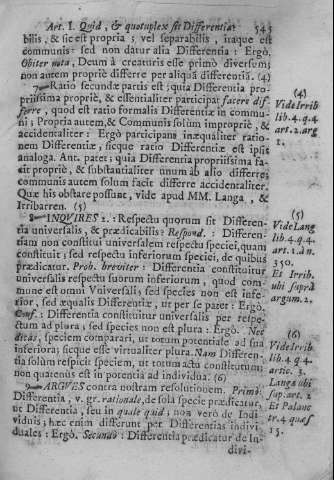 Art. I. Quid, & quotuplex sit Differentia: 545
bilis, & sic est propria; vel separabilis, itaque est
communis: sed non datur alia Differentia: Ergò.
Obiter nota, Deum à creaturis esse primò diversum;
non autem propriè differre per aliquā differentiā. (4)
7 Ratio secundæ partis est; quia Differentia pro-
priissima propriè, & essentialiter participat facere dif-
ferre, quod est ratio formalis Differentiæ in commu-
ni; Propria autem, & Communis solùm impropriè, &
accidentaliter: Ergò participant inæqualiter ratio-
nem Differentiæ, sicque ratio Differentiæ est ipsis
analoga. Ant. patet; quia Differentia propriissima fa-
cit propriè, & substantialiter unum ab alio differre;
communis autem solum facit differre accidentaliter.
Quæ his obstare possunt, vide apud MM. Langa, &
Irribarren. (5)
8 INQVIRES 2. Respectu quorum sit Differen-
tia universalis, & prædicabilis? Respond. Differen-
tiam non constitui universalem respectu speciei, quam
constituit; sed respectu inferiorum speciei, de quibus
prædicatur. Prob. breviter: Differentia constituitur
universalis respectu suorum inferiorum, quod com-
mune est omni Vniversali; sed species non est infe-
rior, sed æqualis Differentiæ, ut per se patet: Ergò.
Conf. Differentia constituitur universalis per respe-
ctum ad plura; sed species non est plura: Ergò. Nec
dicas, speciem comparari, ut totum potentiale ad sua
inferiora; sicque esse virtualiter plura. Nam Differen-
tia solùm respicit speciem, ut totum actu constitutum;
non quatenus est in potentia ad individua. (6)
9 ARGVES contra nostram resolutionem. Primò:
Differentia, v. gr. rationale, de sola specie prædicatur,
ut Differentia, seu in quale quid; non verò de Indi-
viduis; hæc enim differunt per Differentias indivi-
duales: Ergò. Secundo: Differentia prædicatur de In-
divi-
(4)
Vide Irrib
lib. 4. q. 4
art. 2. arg
2.
(5)
Vide Lang
lib. 4. q. 4.
art. 1. à n.
350.
Et Irrib.
ubi suprà
argum. 2.
(6)
Vide Irrib.
lib. 4. q. 4
artic. 3.
Langa ubi
sup. art. 2
Et Palanc
tr. 4. quæs
15.